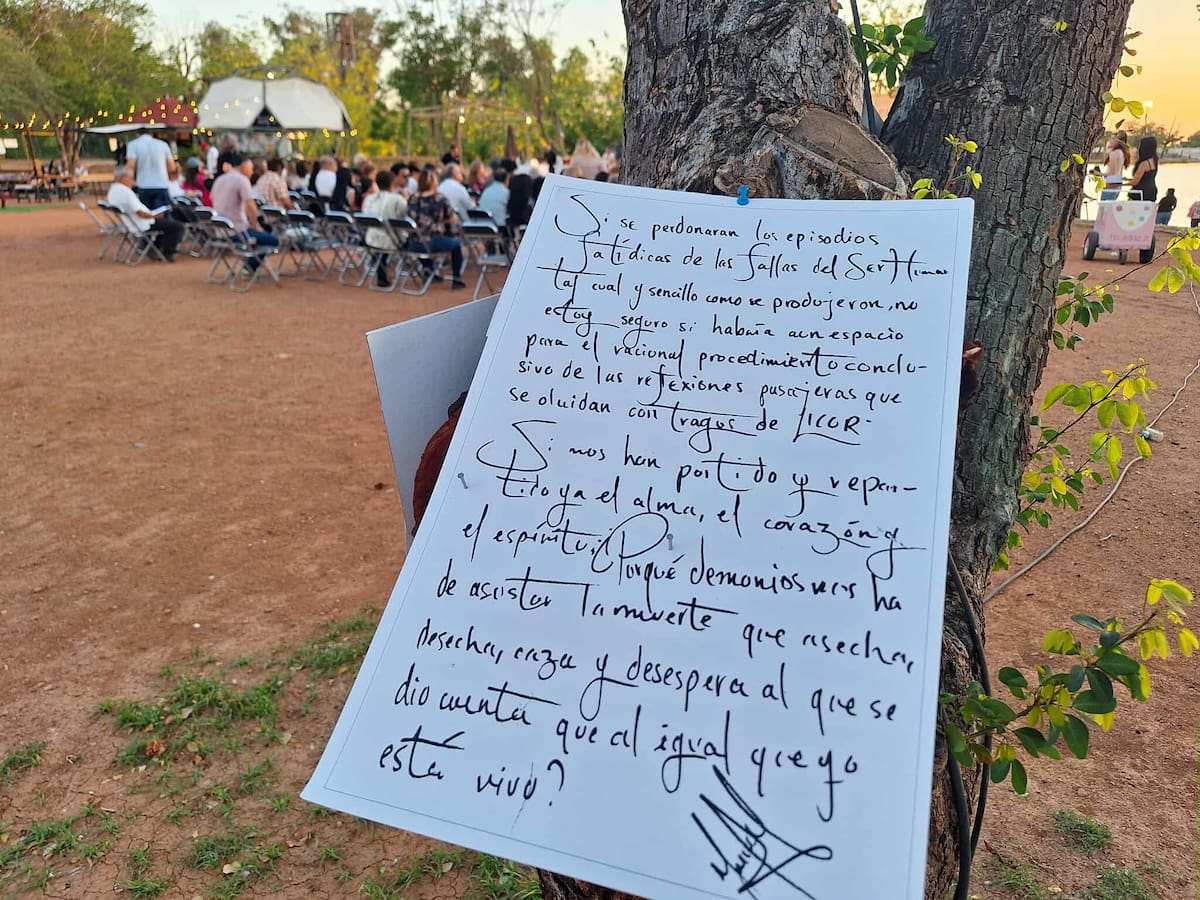 Si se perdonaran los episodios
fatídicas de las fallas del Ser Humano
tal cual y sencillo como se produjeron, no
estoy seguro si habría aun espacio
para el racional procedimiento conclu-
sivo de las reflexiones pasajeras que
se olvidan con tragos de LICOR.
Si nos han partido y repar-
tido ya el alma, el corazón y
el espíritu; ¿Porqué demonios nos ha
de asustar la muerte que asecha,
desecha, caza y desespera al que se
dio cuenta que al igual que yo
está vivo?